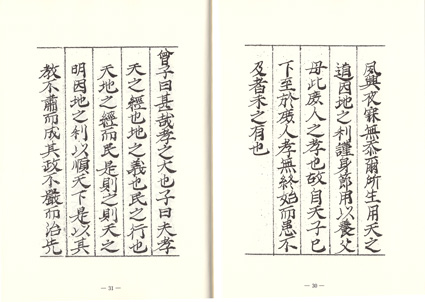 夙興夜寐無忝爾所生用天之
道因地之利謹身節用以養父
母此庶人之孝也故自天子已
下至於庶人孝無終始而患不
及者未之有也
— 30 —
曾子曰甚哉孝之大也子曰夫孝
天之經也地之義也民之行也
天地之經而民是則之則天之
明因地之利以順天下是以其
教不肅而成其政不嚴而治先
— 31 —